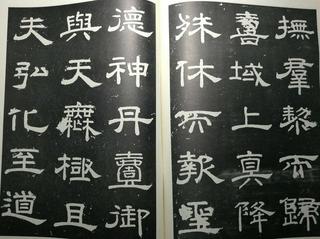 撫羣黎而歸
壽域上真降
殊休而報聖
德神丹御
與天無極且
夫弘化至道